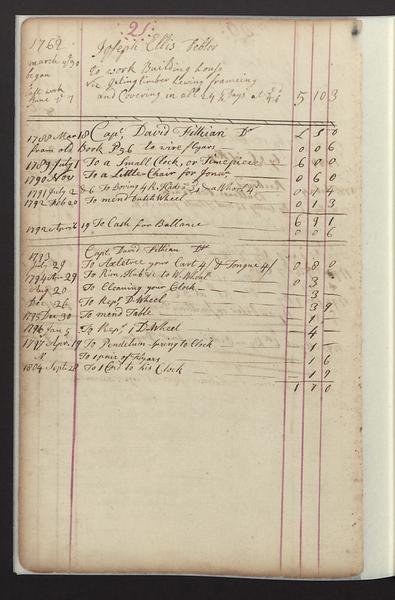 21
1762
Joseph Ellis Debtor
march ye 30 began
to work Building house
viz Geting timber hewing frameing
Left work June ye 7
and Covering in all 24 ½ Days at 4/6 5 10 3
1788 Mar 18 Capt. David Fithian Dr £ s D
from old Book Pg 36 to wire flyers 0 0 6
1789 July 1 To a Small Clock, or Timepiece 6 0 0
1790 Nov To a Little Chair for Jonas 0 6 0
1791 July 2 & 6 To Boring 4 & a Wheel 4/ 0 1 4
1792 Feb 20 To mend Dutch Wheel 0 1 3
6 9 1
1792 April 19 To Cash for Ballance 0 0 6
1793 Capt. David Fithian Dr
July 29 To Axletree your Cart 4/ & Tongue 4/ 0 8 0
1794 Apr 29 To Rim, Hub &c to W. Wheel 0 3
Aug. 20 To Cleaning your Clock 3
Dec 26 To Repr. D. Wheel 3 9
1795 Dec 30 To mend Table 1
1796 Jan 5 To Repr. 1 D. Wheel 4
1797 Apr. 19 To Pendelum Spring to Clock 1
To 1 pair of flyars 1 6
1804 Sept 28 To 1 Cord to his Clock 1 9
1 7 0